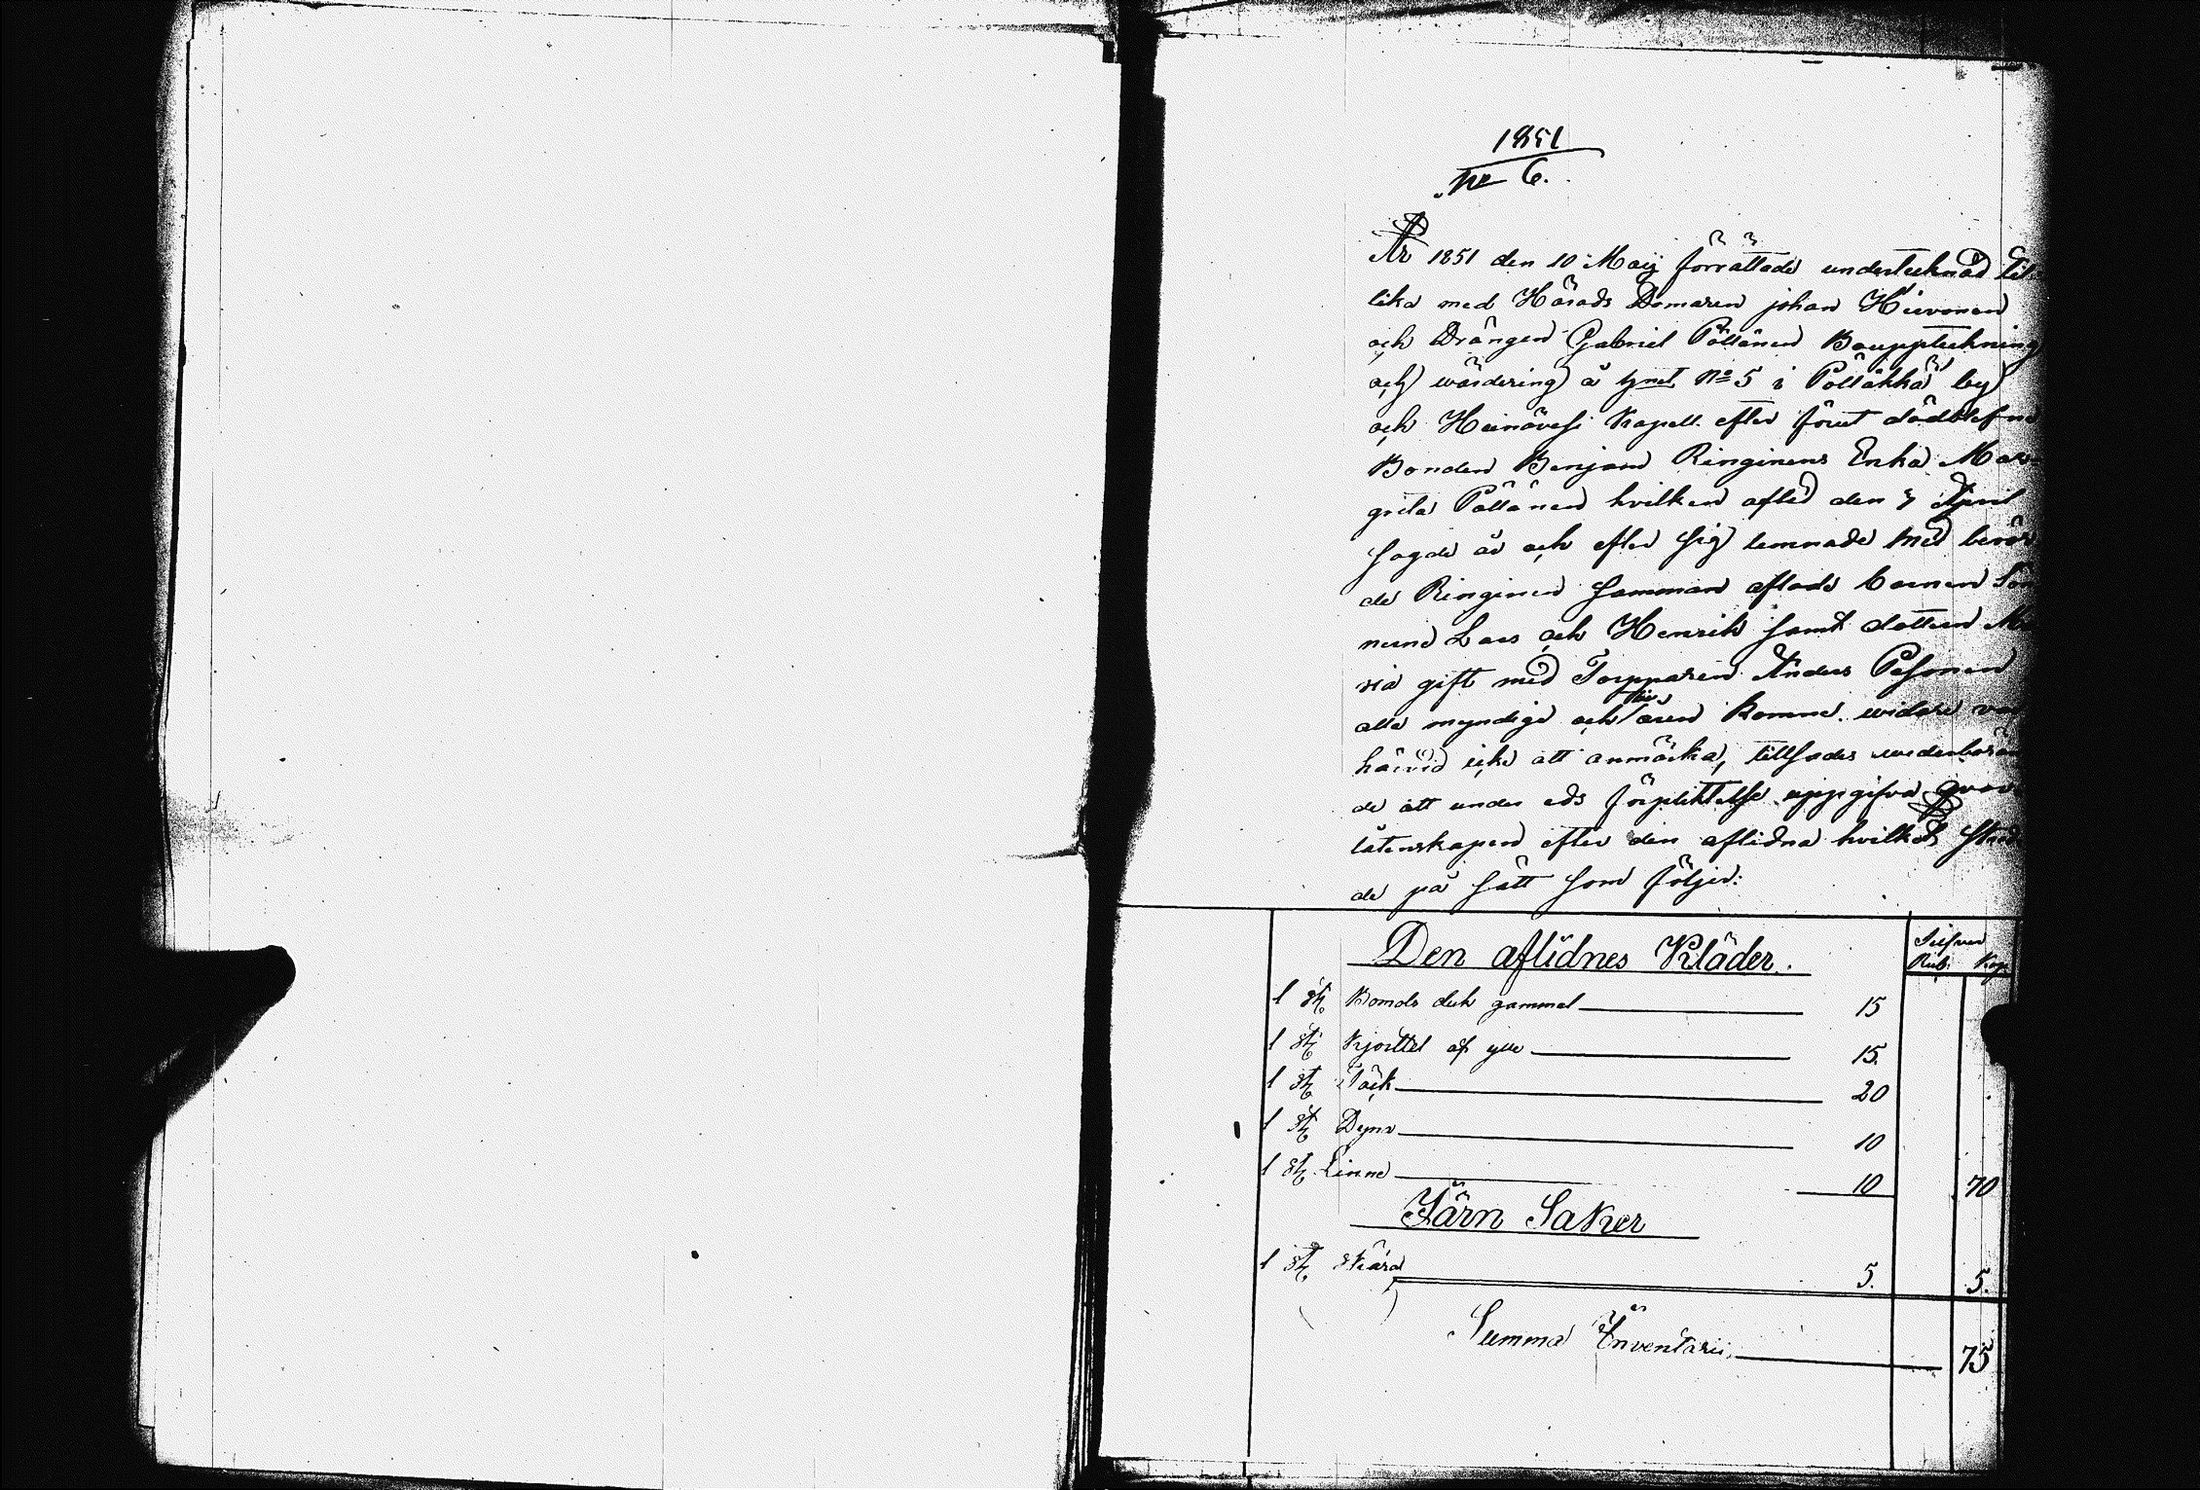 1851
No 6.
År 1851 den 10 Maij förrättade undertecknad til
lika med Härads Domaren johan Hirvonen
och Drängen Gabriel Pöllänen Bouppteckning
och wärdering å hmt No 5 i Pölläkkä by
och Heinävesi Kapell efter förut dödblefne
Bonden Benjam Ringinens Enka Mar=
greta Pöllänen hvilken afled den 7 April
sagde år och efter sig lemnade med berör
de Ringinen samman aflade barnen Sön
nerne Lars och Henrik samt dottren Ma
ria gift med Torpparen Anders Pesonen
alla myndige och komne widare var
härvid icke att anmärka, tillsades wederböran
de att under eds förpliktelse uppgifva qvar
låtenskapen efter den aflidna hvilket skied
de på sätt som följer:
Den aflidnes Kläder.
Silfver
Rub. Kop.
1 st. Bomols duk gammal 15
1 st. Kjorttel af ylle 15.
1 st. Täck 20
1 st. Dyna 10
1 st. Linne 10 70
Järn Saker
1 st. Skära 5. 5.
Summa Inventarii 75